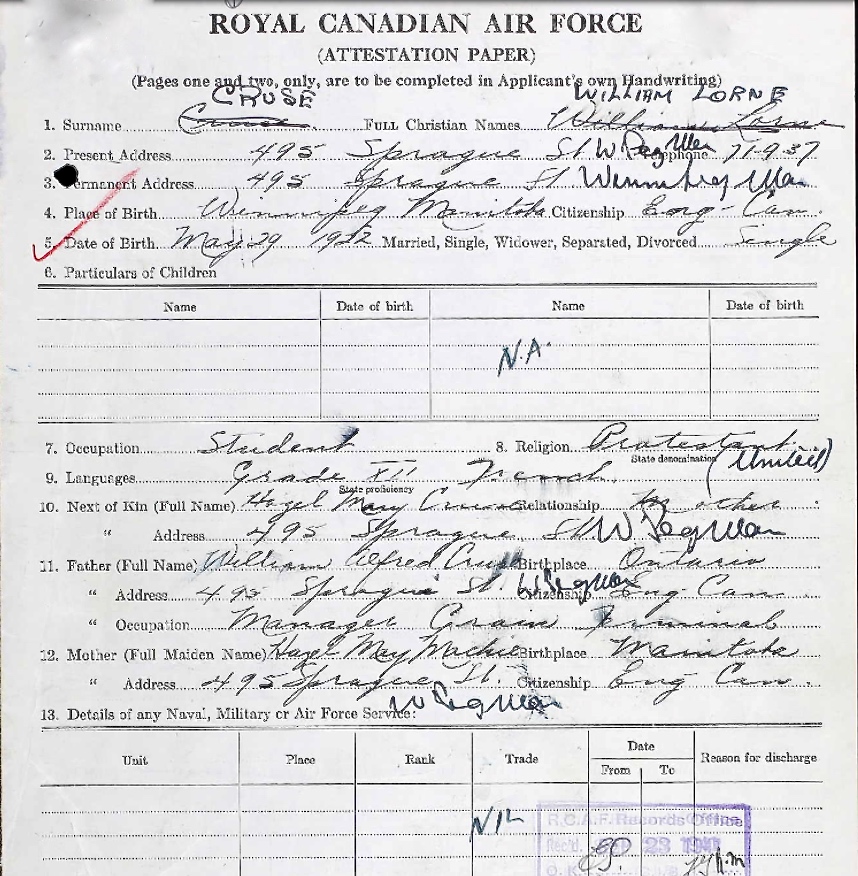 ROYAL CANADIAN AIR FORCE
(ATTESTATION PAPER)
(Pages one and two, only, are to be completed in Applicant's own Handwriting)
CRUSE WILLIAM LORNE
1. Surname Cruse FULL Christian Names William Lorne
2. Present Address 495 Sprague St W Peg Man Telephone 71-937
3. Permanent Address 495 Sprague St Winnipeg Man
4. Place of Birth Winnipeg Manitoba Citizenship Eng-Can.
5. Date of Birth May 29 1922 Married, Single, Widower, Separated, Divorced Single
6. Particulars of Children
Name Date of birth Name Date of birth
N.A.
7. Occupation Student 8. Religion Protestant
State denomination (United)
9. Languages Grade XII French
State proficiency
10. Next of Kin (Full Name) Hazel May Cruse Relationship Mother
" Address 495 Sprague St W Peg Man
11. Father (Full Name) William Alfred Cruse Birthplace Ontario
" Address 495 Sprague St. W Peg Man Citizenship Eng-Can
" Occupation Manager Grain Terminal
12. Mother (Full Maiden Name) Hazel May Birthplace Manitoba
" Address 495 Sprague St. Citizenship Eng Can.
W Peg Man
13. Details of any Naval, Military or Air Force Service:
Unit Place Rank Trade Date Reason for discharge
From To
NIL
R.C.A.F. Records Office
Rec'd. 23
O.K.